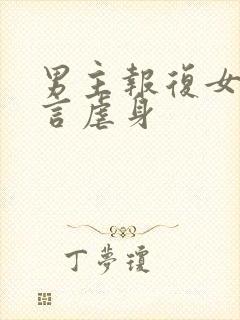 男主報復女
言虐身
丁夢瓊